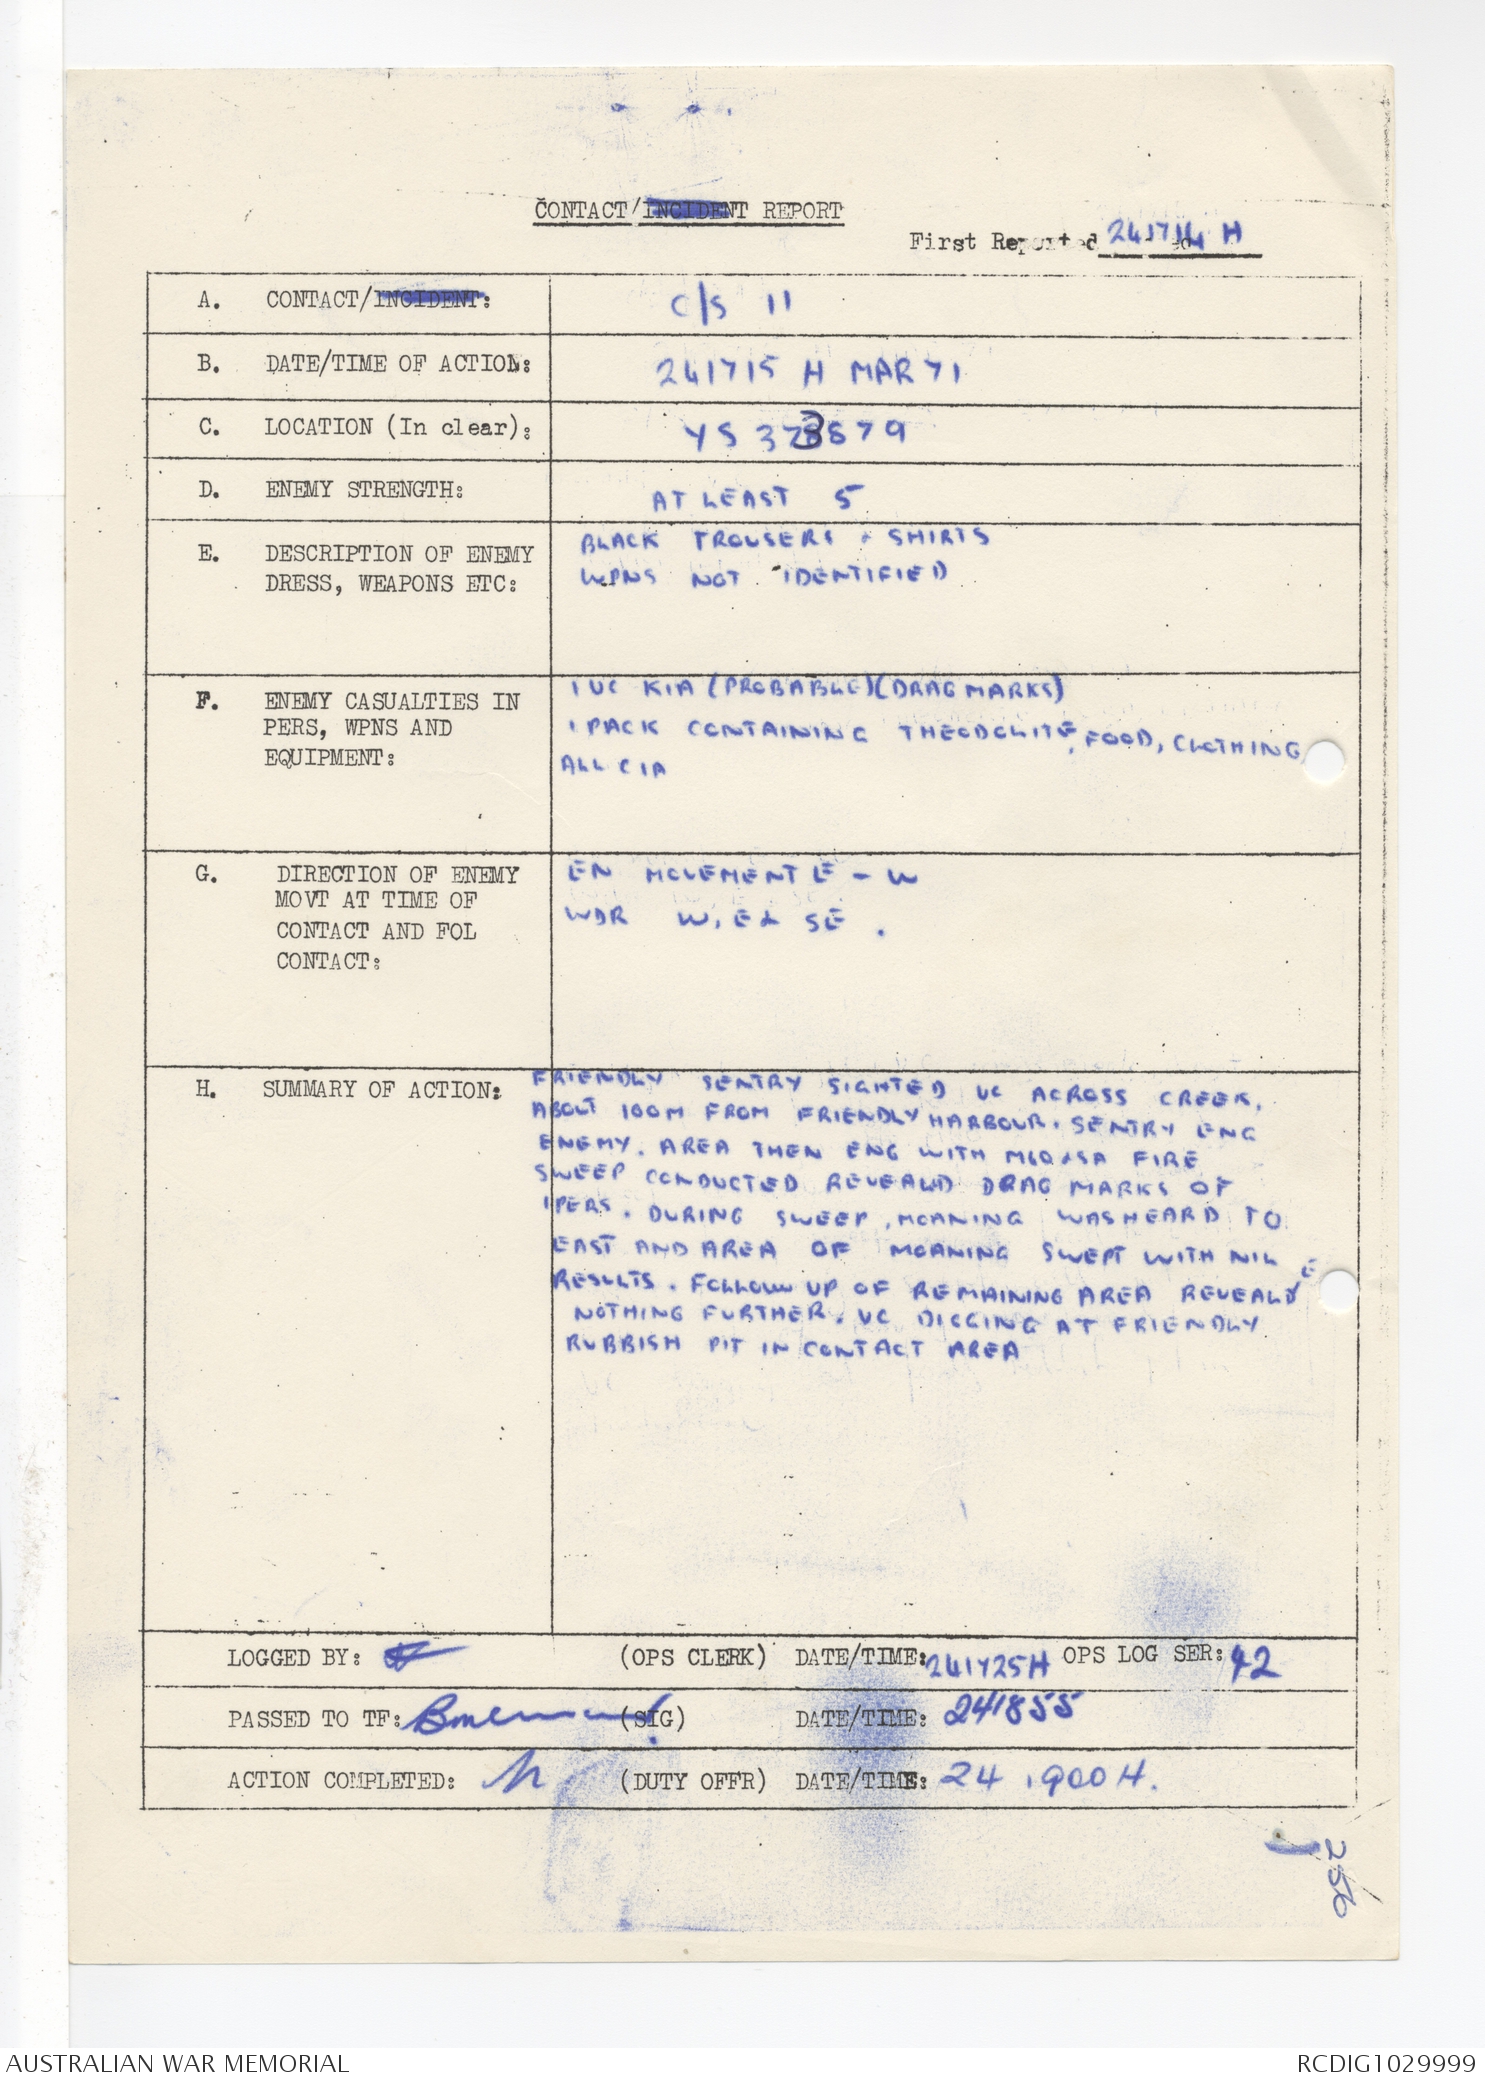 CONTACT/INCIDENT REPORT
First Reported 241714 H
A. CONTACT/INCIDENT: C/S 11
B. DATE/TIME OF ACTION: 241715 H MAR 71
C. LOCATION (In clear): YS 373879
D. ENEMY STRENGTH: AT LEAST 5
E. DESCRIPTION OF ENEMY
DRESS, WEAPONS ETC:
BLACK TROUSERS + SHIRTS
WPNS NOT IDENTIFIED
F. ENEMY CASUALTIES IN
PERS, WPNS AND
EQUIPMENT:
1 VC KIA (PROBABLE)(DRAG MARKS)
1 PACK CONTAINING THEODOLITE, FOOD, CLOTHING
ALL CIA
G. DIRECTION OF ENEMY
MOVT AT TIME OF
CONTACT AND FOL
CONTACT:
EN MOVEMENT E - W
WDR W, E & SE.
H. SUMMARY OF ACTION:
FRIENDLY SENTRY SIGHTED VC ACROSS CREEK,
ABOUT 100M FROM FRIENDLY HARBOUR. SENTRY ENG
ENEMY. AREA THEN ENG WITH M60 & SA FIRE
SWEEP CONDUCTED REVEALD DRAG MARKS OF
1 PERS. DURING SWEEP, MOANING WAS HEARD TO
EAST AND AREA OF MOANING SWEPT WITH NIL
RESULTS. FOLLOW UP OF REMAINING AREA REVEALED
NOTHING FURTHER. VC DIGGING AT FRIENDLY
RUBBISH PIT IN CONTACT AREA
LOGGED BY: (OPS CLERK) DATE/TIME: 241725H OPS LOG SER: 42
PASSED TO TF: (SIG) DATE/TIME: 241855
ACTION COMPLETED: (DUTY OFFR) DATE/TIME: 24 1900 H.
256
AUSTRALIAN WAR MEMORIAL
RCDIG1029999